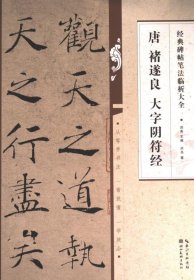 经典碑帖笔法临析大全
唐 褚遂良 大字阴符经
觀天之道執
天之行盡矣